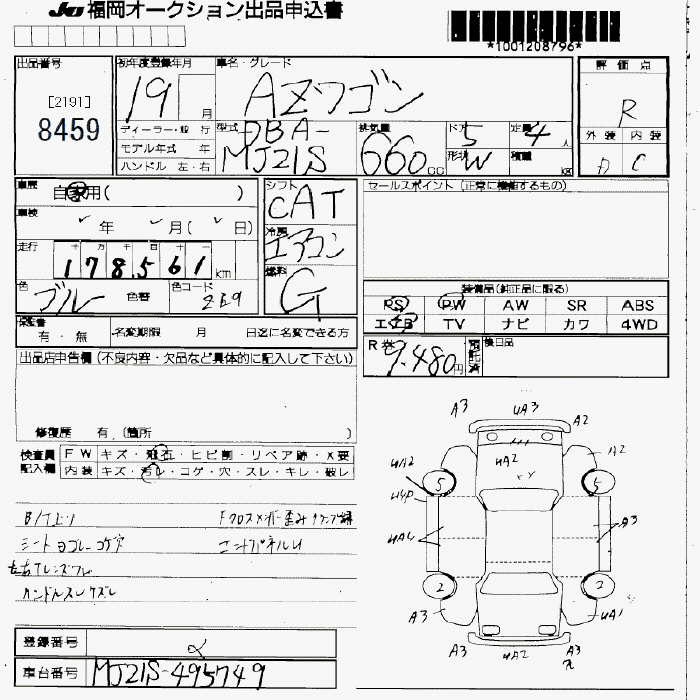 JU 福岡オークション出品申込書
*1001208796*
出品番号
[2191]
8459
初年度登録年月
19 月
車名・グレード
AZワゴン
評価点
R
外装 内装
D C
ディーラー・並行
モデル年式 年
ハンドル 左・右
型式
DBA-
MJ21S
排気量
660 CC
ドア 5
定員 4 人
形状 W
積載 KG
車歴
自家用( )
車検
年 月( 日)
走行
178,561 km
色 ブルー 色替 色コード
シフト
CAT
冷房
エアコン
燃料
G
セールスポイント (正常に機能するもの)
装備品(純正品に限る)
PS PW AW SR ABS
エアB TV ナビ カワ 4WD
保証書
有・無
名変期限 月 日迄に名変できる方
R券
9,480円
預託済
後日品
出品店申告欄(不良内容・欠品など具体的に記入して下さい)
修復歴 有 (箇所 )
検査員
記入欄
FW キズ・飛石・ヒビ割・リペア跡・X要
内装 キズ・汚レ・コゲ・穴・スレ・キレ・破レ
シートヨゴレ コゲ穴
ハンドルスレ ケズレ
A3 UA3 A2
UA2 UA2 A2
5 5
UA2 A3
2 2
A3 UA1
A3 UA2 A3
登録番号
車台番号 MJ21S-495749